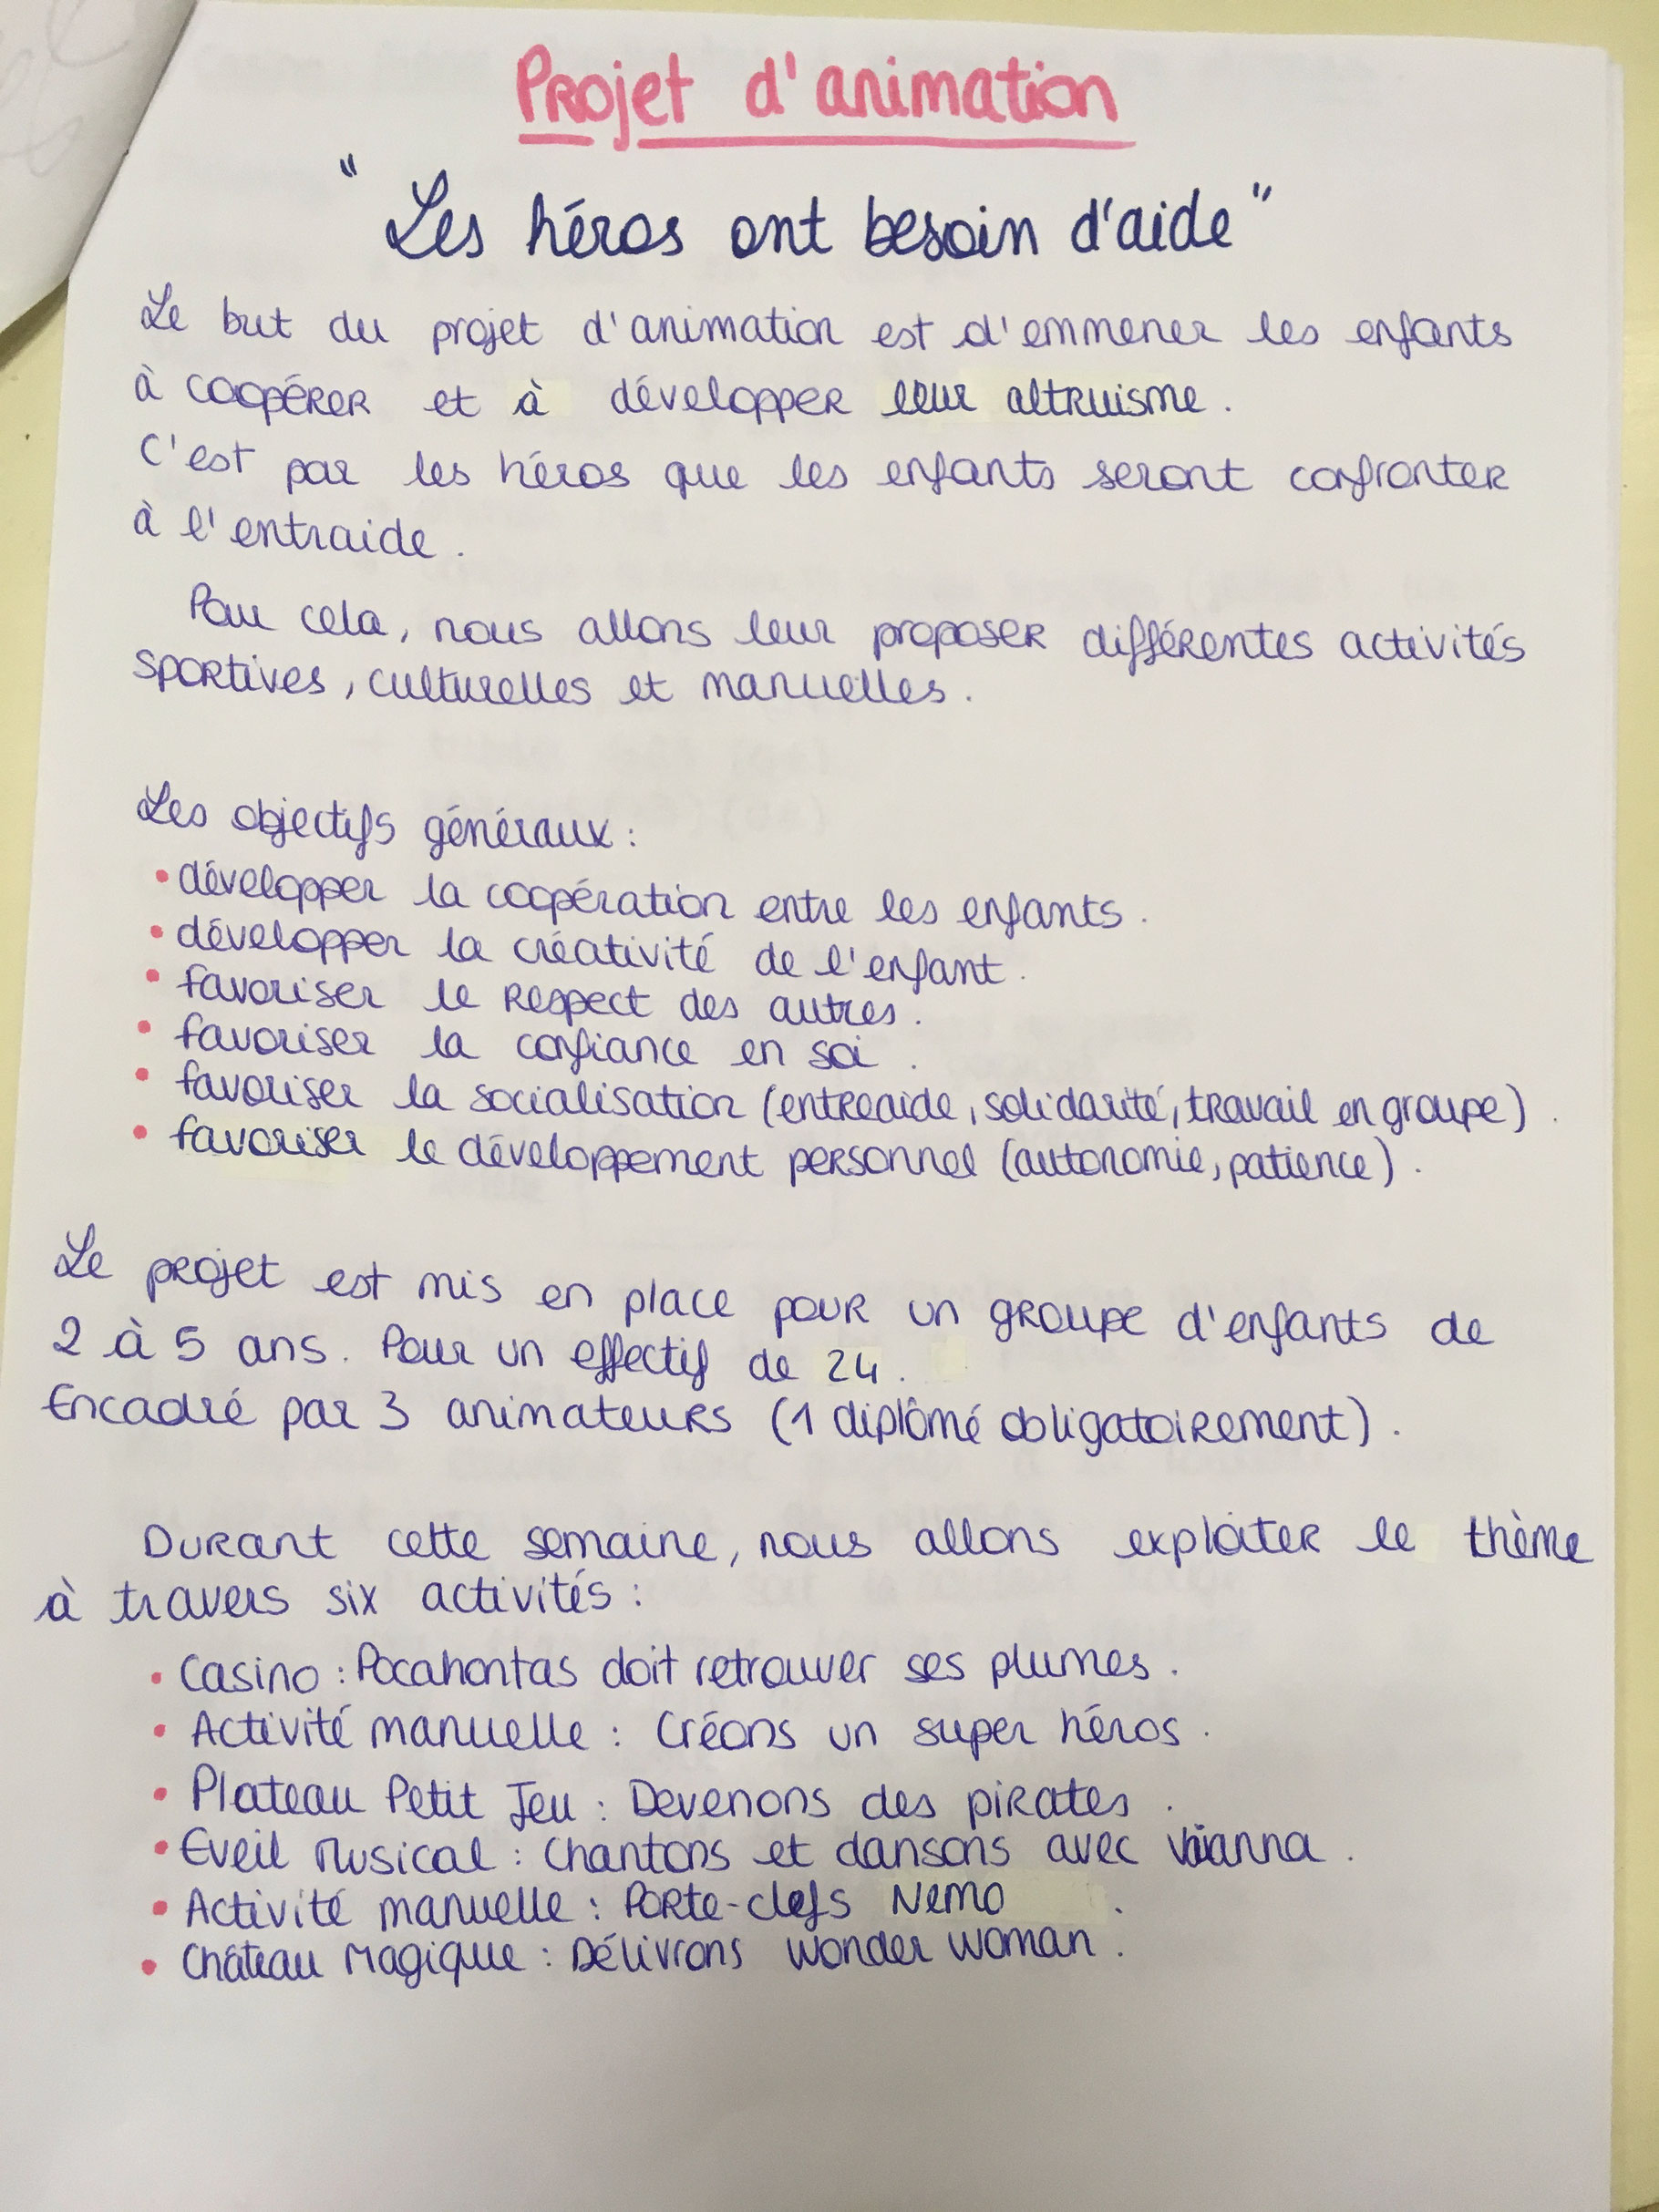 Projet d'animation
"Les héros ont besoin d'aide"
Le but du projet d'animation est d'emmener les enfants
à coopérer et à développer leur altruisme.
C'est par les héros que les enfants seront confronter
à l'entraide.
Pour cela, nous allons leur proposer différentes activités
sportives, culturelles et manuelles.
Les objectifs généraux :
• développer la coopération entre les enfants.
• développer la créativité de l'enfant.
• favoriser le respect des autres.
• favoriser la confiance en soi.
• favoriser la socialisation (entreaide, solidarité, travail en groupe).
• favoriser le développement personnel (autonomie, patience).
Le projet est mis en place pour un groupe d'enfants de
2 à 5 ans. Pour un effectif de 24.
Encadré par 3 animateurs (1 diplômé obligatoirement).
Durant cette semaine, nous allons exploiter le thème
à travers six activités :
• Casino : Pocahontas doit retrouver ses plumes.
• Activité manuelle : Créons un super héros.
• Plateau Petit Jeu : Devenons des pirates.
• Eveil Musical : Chantons et dansons avec Vaianna.
• Activité manuelle : Porte-clefs Nemo.
• Château Magique : Délivrons Wonder Woman.